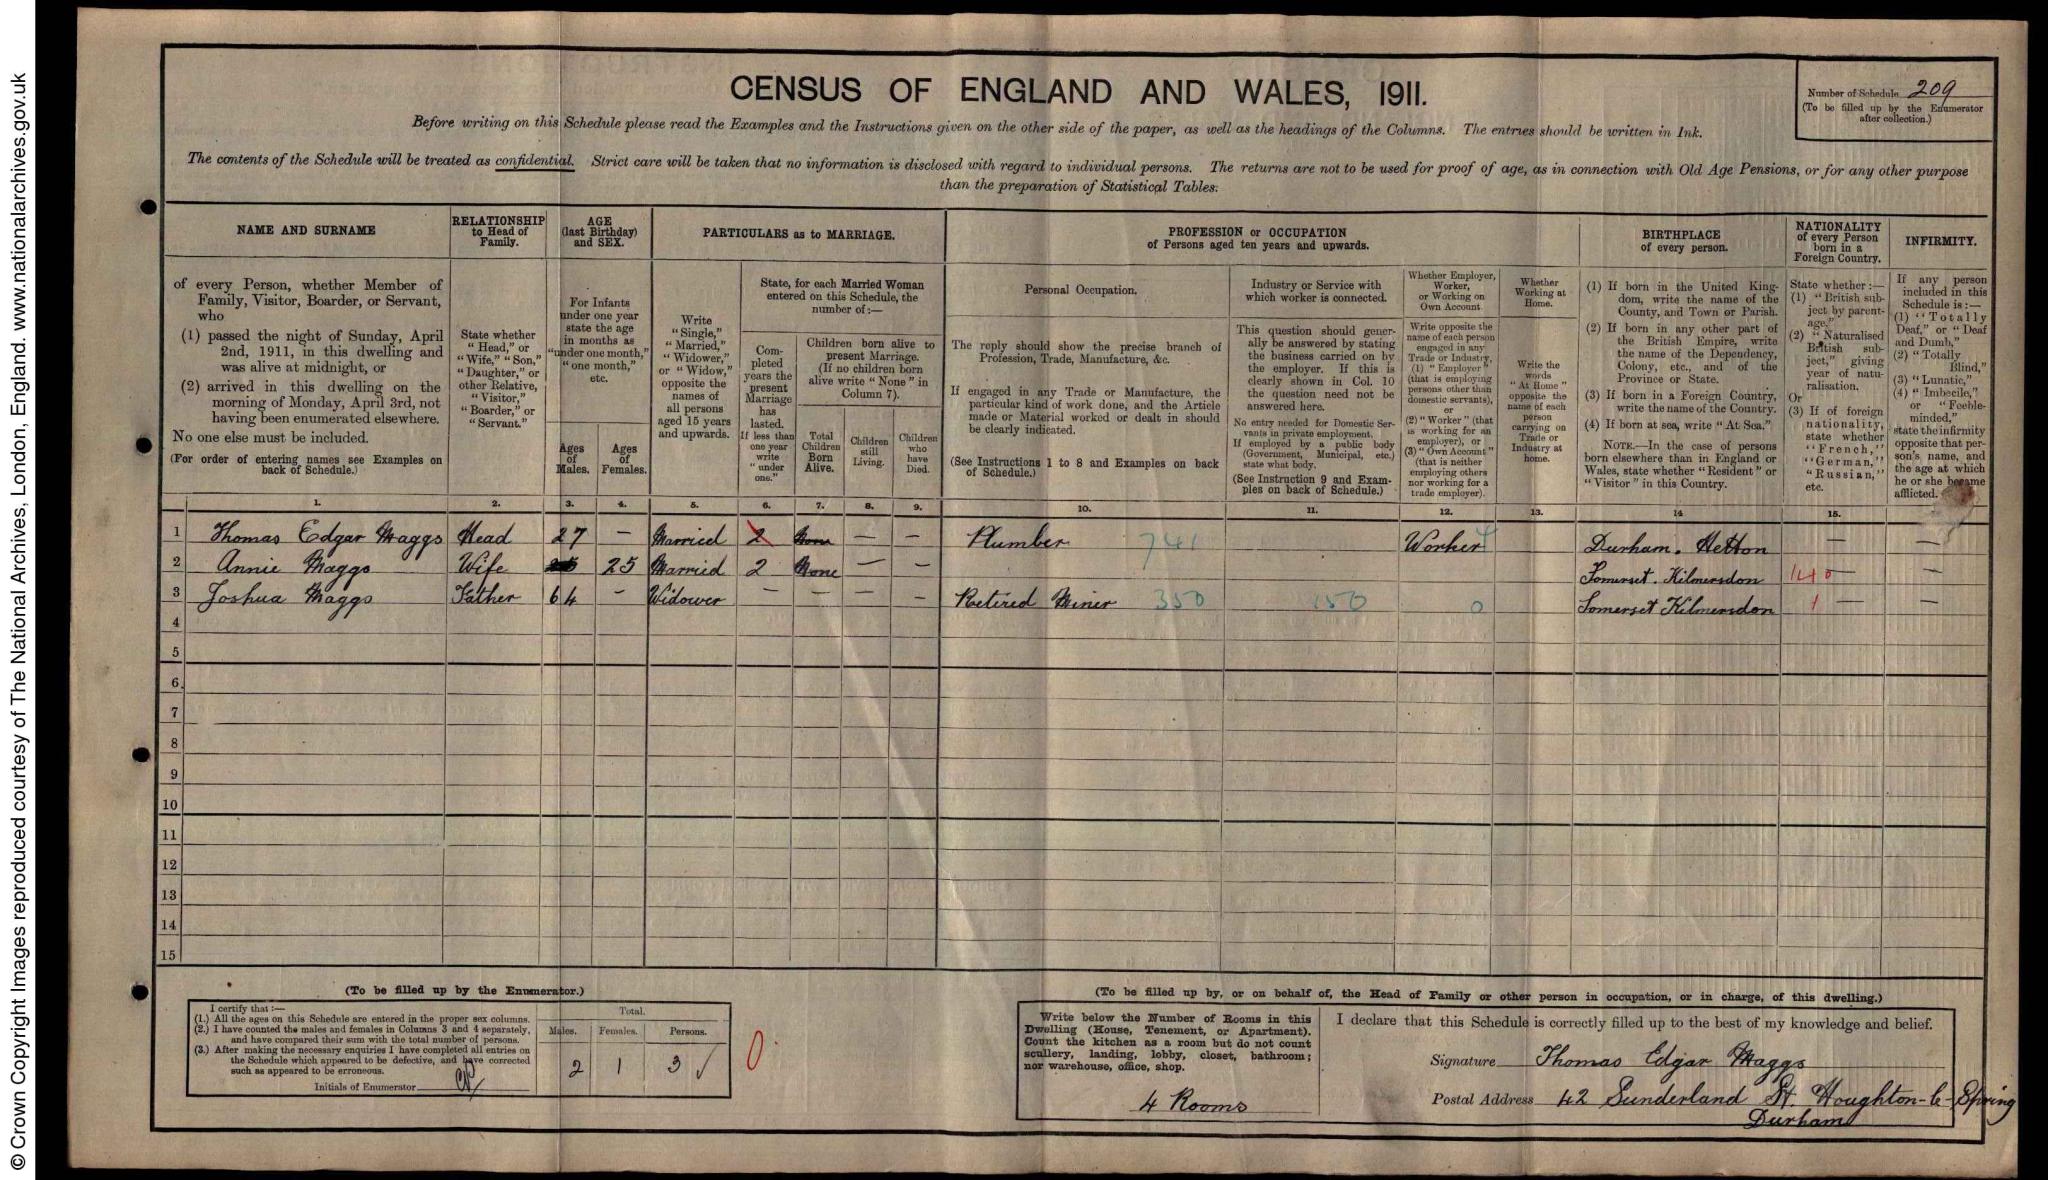 © Crown Copyright Images reproduced courtesy of The National Archives, London, England. www.nationalarchives.gov.uk
CENSUS OF ENGLAND AND WALES, 1911.
Number of Schedule 209
(To be filled up by the Enumerator
after collection.)
Before writing on this Schedule please read the Examples and the Instructions given on the other side of the paper, as well as the headings of the Columns. The entries should be written in Ink.
The contents of the Schedule will be treated as confidential. Strict care will be taken that no information is disclosed with regard to individual persons. The returns are not to be used for proof of age, as in connection with Old Age Pensions, or for any other purpose
than the preparation of Statistical Tables.
NAME AND SURNAME
of every Person, whether Member of
Family, Visitor, Boarder, or Servant,
who
(1) passed the night of Sunday, April
2nd, 1911, in this dwelling and
was alive at midnight, or
(2) arrived in this dwelling on the
morning of Monday, April 3rd, not
having been enumerated elsewhere.
No one else must be included.
(For order of entering names see Examples on
back of Schedule.)
RELATIONSHIP
to Head of
Family.
State whether
"Head," or
"Wife," "Son,"
"Daughter," or
other Relative,
"Visitor,"
"Boarder," or
"Servant."
AGE
(last Birthday)
and SEX.
For Infants
under one year
state the age
in months as
"under one month,"
"one month,"
etc.
Ages
of
Males.
Ages
of
Females.
PARTICULARS as to MARRIAGE.
Write
"Single,"
"Married,"
"Widower,"
or "Widow,"
opposite the
names of
all persons
aged 15 years
and upwards.
State, for each Married Woman
entered on this Schedule, the
number of:—
Com-
pleted
years the
present
Marriage
has
lasted.
If less than
one year
write
"under
one."
Children born alive to
present Marriage.
(If no children born
alive write "None" in
Column 7).
Total
Children
Born
Alive.
Children
still
Living.
Children
who
have
Died.
PROFESSION or OCCUPATION
of Persons aged ten years and upwards.
Personal Occupation.
The reply should show the precise branch of
Profession, Trade, Manufacture, &c.
If engaged in any Trade or Manufacture, the
particular kind of work done, and the Article
made or Material worked or dealt in should
be clearly indicated.
(See Instructions 1 to 8 and Examples on back
of Schedule.)
Industry or Service with
which worker is connected.
This question should gener-
ally be answered by stating
the business carried on by
the employer. If this is
clearly shown in Col. 10
the question need not be
answered here.
No entry needed for Domestic Ser-
vants in private employment.
If employed by a public body
(Government, Municipal, etc.)
state what body.
(See Instruction 9 and Exam-
ples on back of Schedule.)
Whether Employer,
Worker,
or Working on
Own Account
Write opposite the
name of each person
engaged in any
Trade or Industry,
(1) "Employer"
(that is employing
persons other than
domestic servants),
or
(2) "Worker" (that
is working for an
employer), or
(3) "Own Account"
(that is neither
employing others
nor working for a
trade employer).
Whether
Working at
Home.
Write the
words
"At Home"
opposite the
name of each
person
carrying on
Trade or
Industry at
home.
BIRTHPLACE
of every person.
(1) If born in the United King-
dom, write the name of the
County, and Town or Parish.
(2) If born in any other part of
the British Empire, write
the name of the Dependency,
Colony, etc., and of the
Province or State.
(3) If born in a Foreign Country,
write the name of the Country.
(4) If born at sea, write "At Sea."
NOTE.—In the case of persons
born elsewhere than in England or
Wales, state whether "Resident" or
"Visitor" in this Country.
NATIONALITY
of every Person
born in a
Foreign Country.
State whether:—
(1) "British sub-
ject by parent-
age,"
(2) "Naturalised
British sub-
ject," giving
year of natu-
ralisation.
Or
(3) If of foreign
nationality,
state whether
"French,"
"German,"
"Russian,"
etc.
INFIRMITY.
If any person
included in this
Schedule is:—
(1) "Totally
Deaf," or "Deaf
and Dumb,"
(2) "Totally
Blind,"
(3) "Lunatic,"
(4) "Imbecile,"
or "Feeble-
minded,"
state the infirmity
opposite that per-
son's name, and
the age at which
he or she became
afflicted.
1. 2. 3. 4. 5. 6. 7. 8. 9. 10. 11. 12. 13. 14 15. 16.
1 Thomas Edgar Maggs Head 27 — Married 2 None — — Plumber 741 Worker Durham. Hetton — —
2 Annie Maggs Wife 25 Married 2 None — — Somerset. Kilmersdon 140 — —
3 Joshua Maggs Father 64 - Widower — — — — Retired Miner 350 150 0 Somerset Kilmersdon 1 — —
4
5
6
7
8
9
10
11
12
13
14
15
(To be filled up by the Enumerator.)
I certify that:—
(1.) All the ages on this Schedule are entered in the proper sex columns.
(2.) I have counted the males and females in Columns 3 and 4 separately,
and have compared their sum with the total number of persons.
(3.) After making the necessary enquiries I have completed all entries on
the Schedule which appeared to be defective, and have corrected
such as appeared to be erroneous.
Initials of Enumerator
Total.
Males. Females. Persons.
2 1 3 ✓
0
(To be filled up by, or on behalf of, the Head of Family or other person in occupation, or in charge, of this dwelling.)
Write below the Number of Rooms in this
Dwelling (House, Tenement, or Apartment).
Count the kitchen as a room but do not count
scullery, landing, lobby, closet, bathroom;
nor warehouse, office, shop.
4 Rooms
I declare that this Schedule is correctly filled up to the best of my knowledge and belief.
Signature Thomas Edgar Maggs
Postal Address 42 Sunderland St. Houghton-le-Spring
Durham